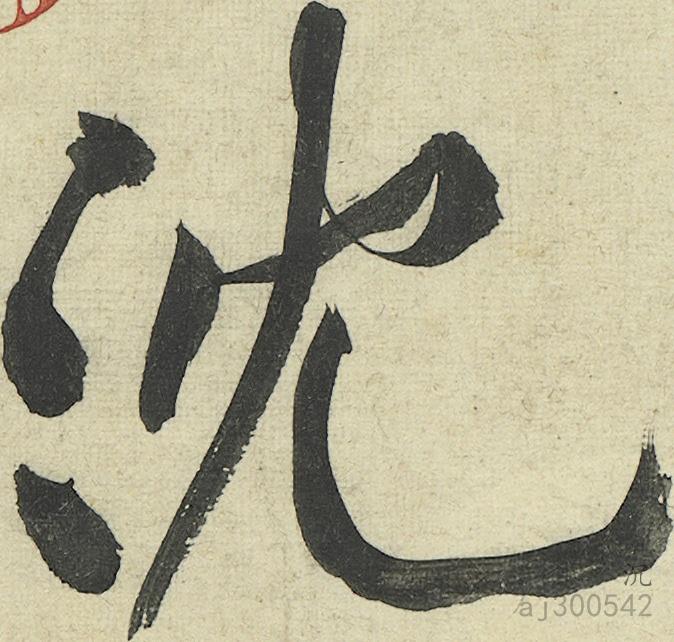 沈
aj300542